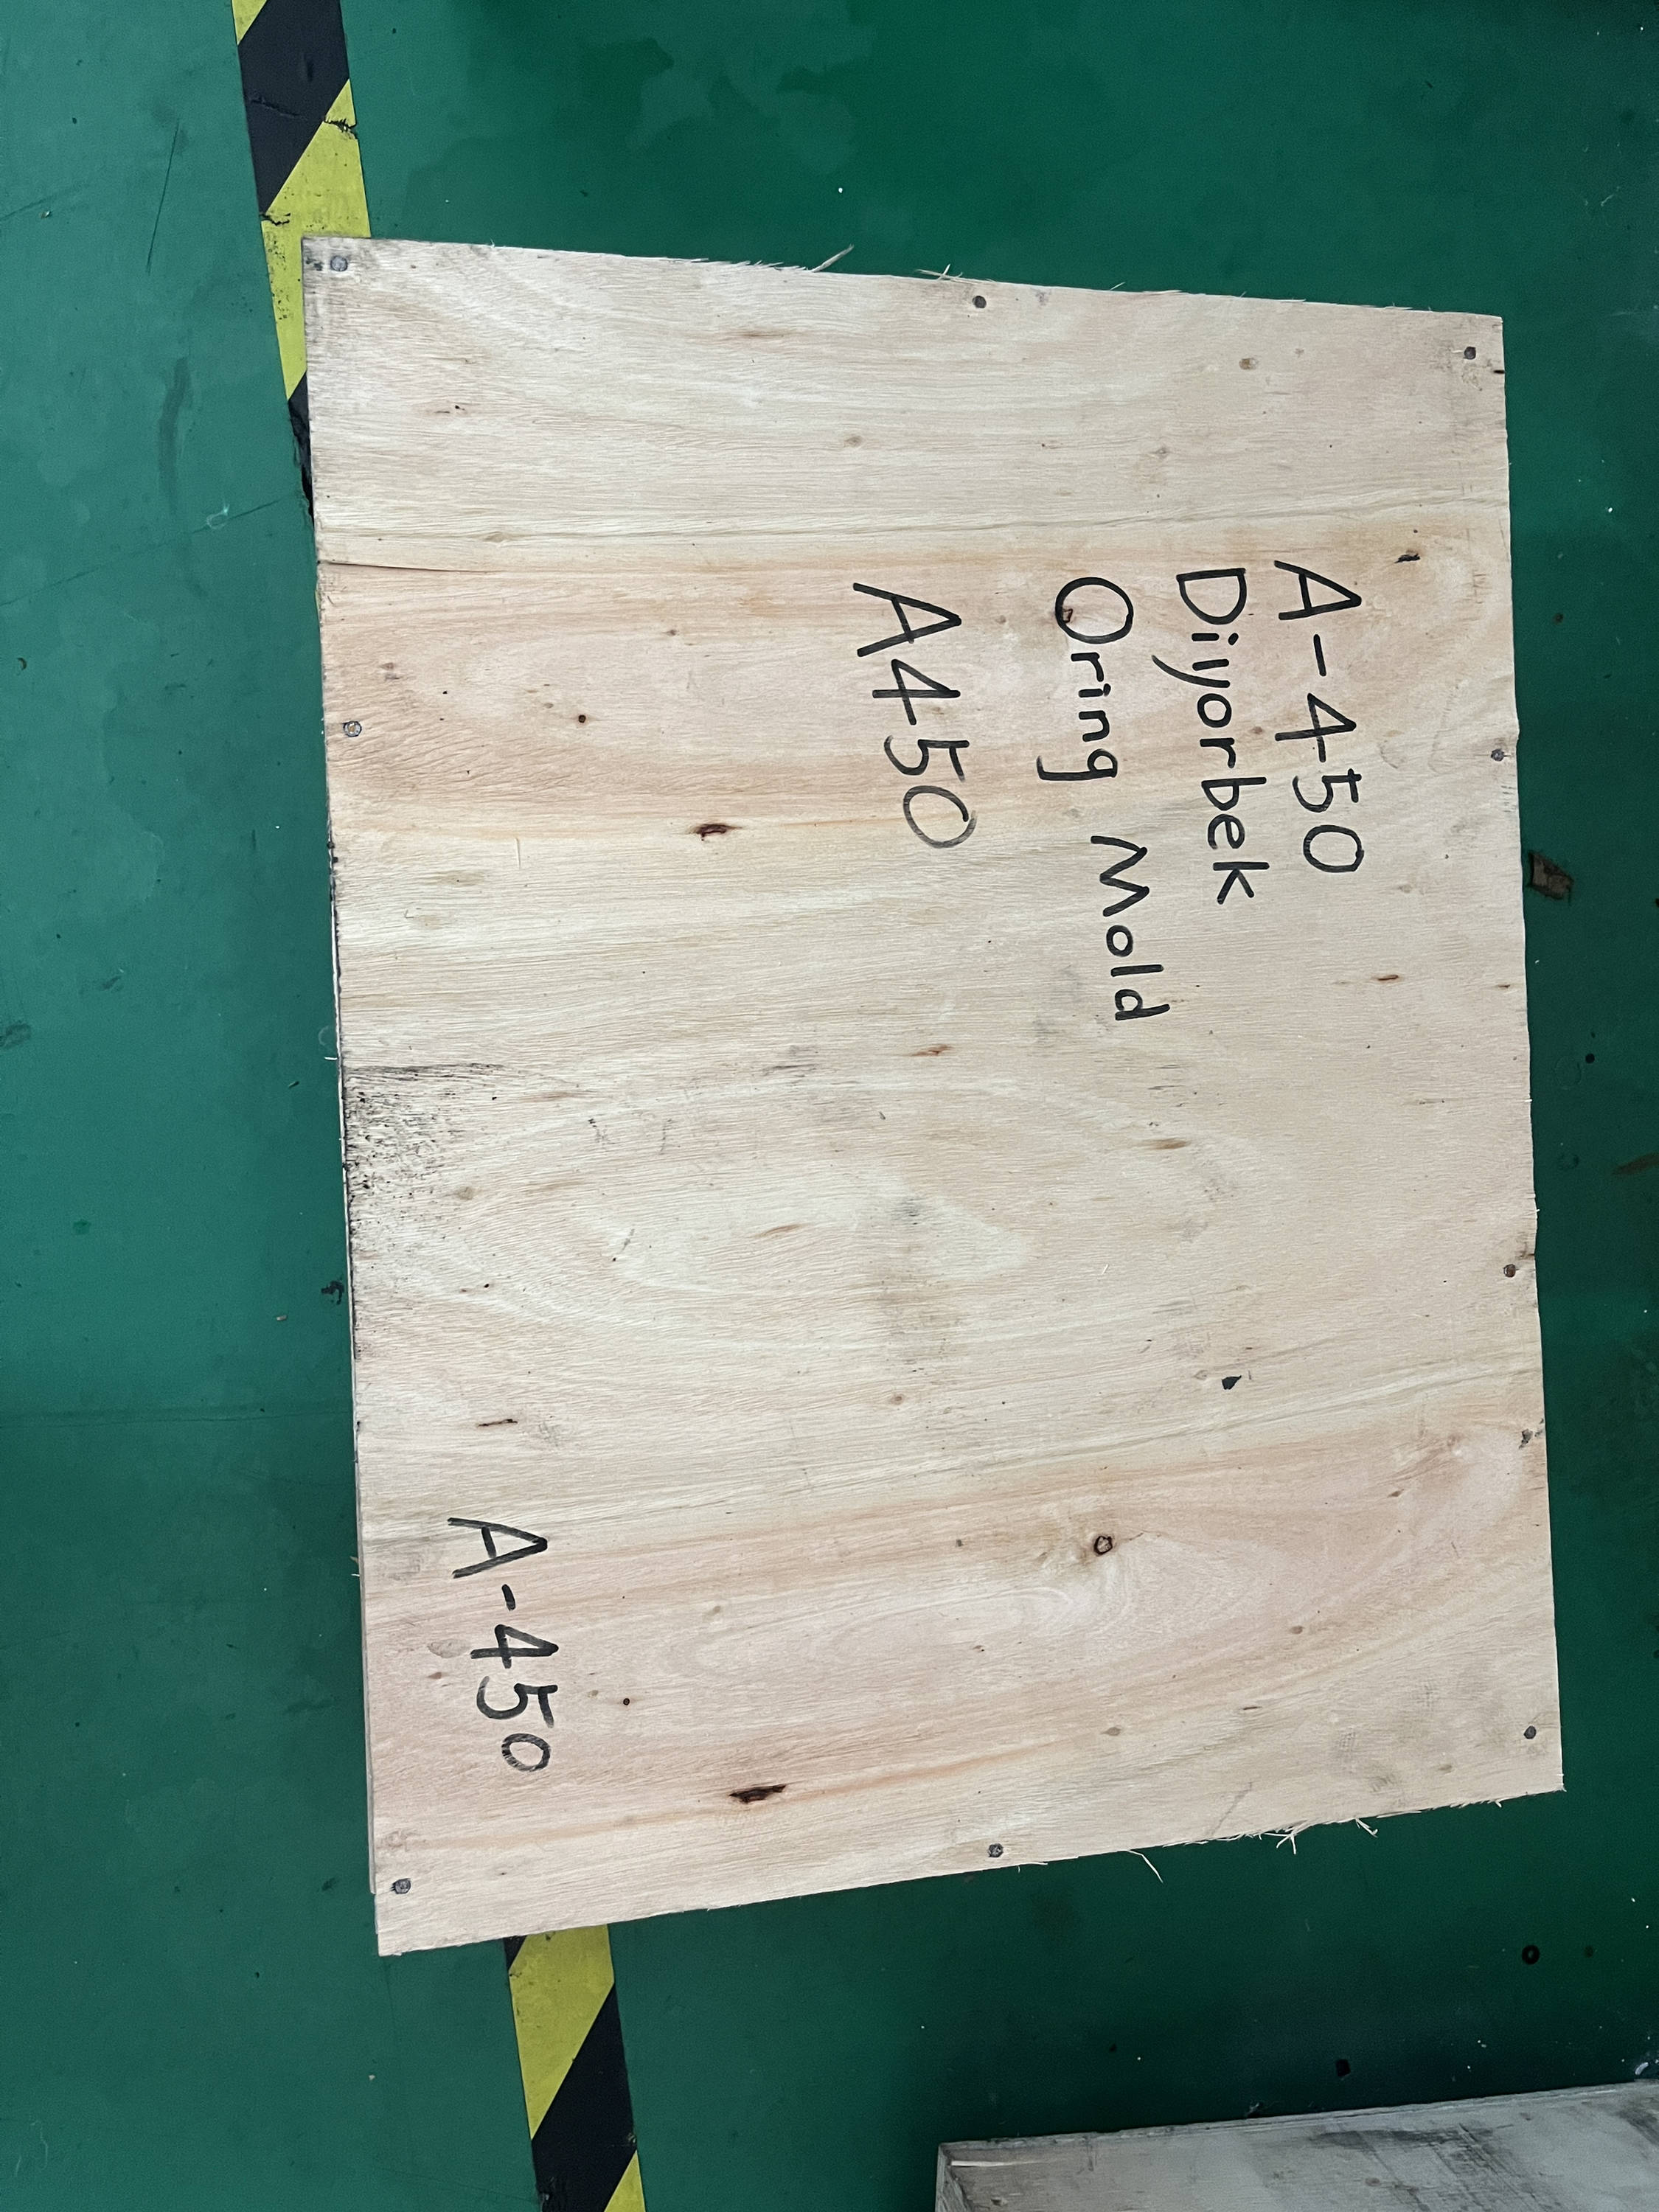 A-450
Diyorbek
Oring Mold
A450
A-450